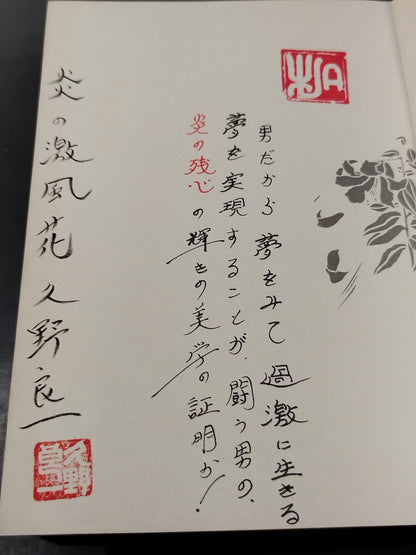 男だから夢をみて過激に生きる
夢を実現することが、闘う男の、
炎の残心の輝きの美学の証明か!
炎の激風花 久野良一
久野
良一